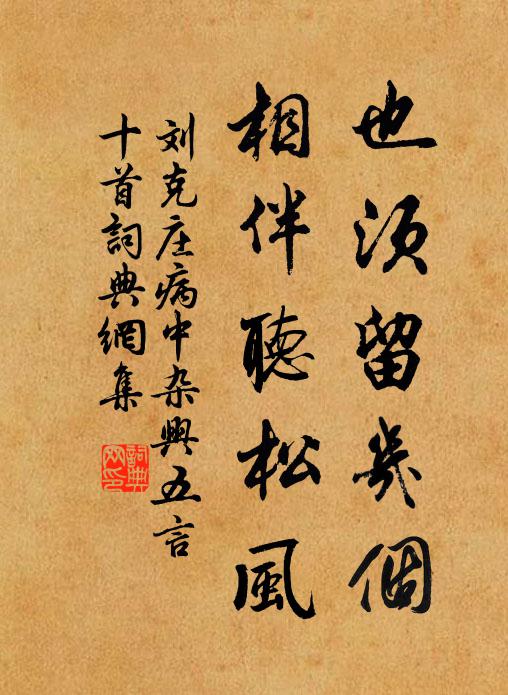 也须留幾個
相伴聽松風
刘克庄病中杂興五言
十首詞典網集
詞典
网印